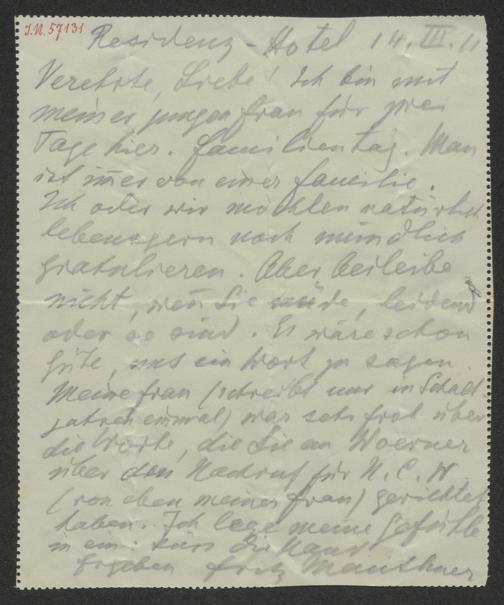 I.N. 57131
Residenz-Hotel 14. III. 11
Verehrte, Liebe! Ich bin mit
meiner jungen Frau für zwei
Tage hier. Familientag. Man
ist im̄er von einer Familie.
Ich oder wir möchten natürlich
lebensgern noch mündlich
gratulieren. Aber beileibe
nicht, wen̄ Sie müde, leidend
oder so sind. Es wäre schon
Güte, uns ein Wort zu sagen.
Meine Frau (schreibt nur in Schalt-
jahren einmal) war sehr froh über
die Worte, die Sie an Woerner
über den Nachruf für H. C. W
(von eben meiner Frau) gerichtet
haben. Ich lege meine Gefühle
in ein: Küss die Hand
Ergeben Fritz Mauthner